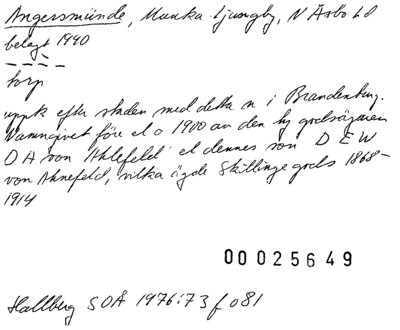 Angersmünde, Munka-Ljungby, N Åsbo hd
belagt 1940
torp
uppk efter staden med detta n i Brandenburg.
Namngivet före el o 1900 av den ty godsägaren
D A von Ahlefeld el dennes son D E W
von Ahnefeld, vilka ägde Skillinge gods 1868-
1914
00025649
Hallberg SOÅ 1976:73 f o 81